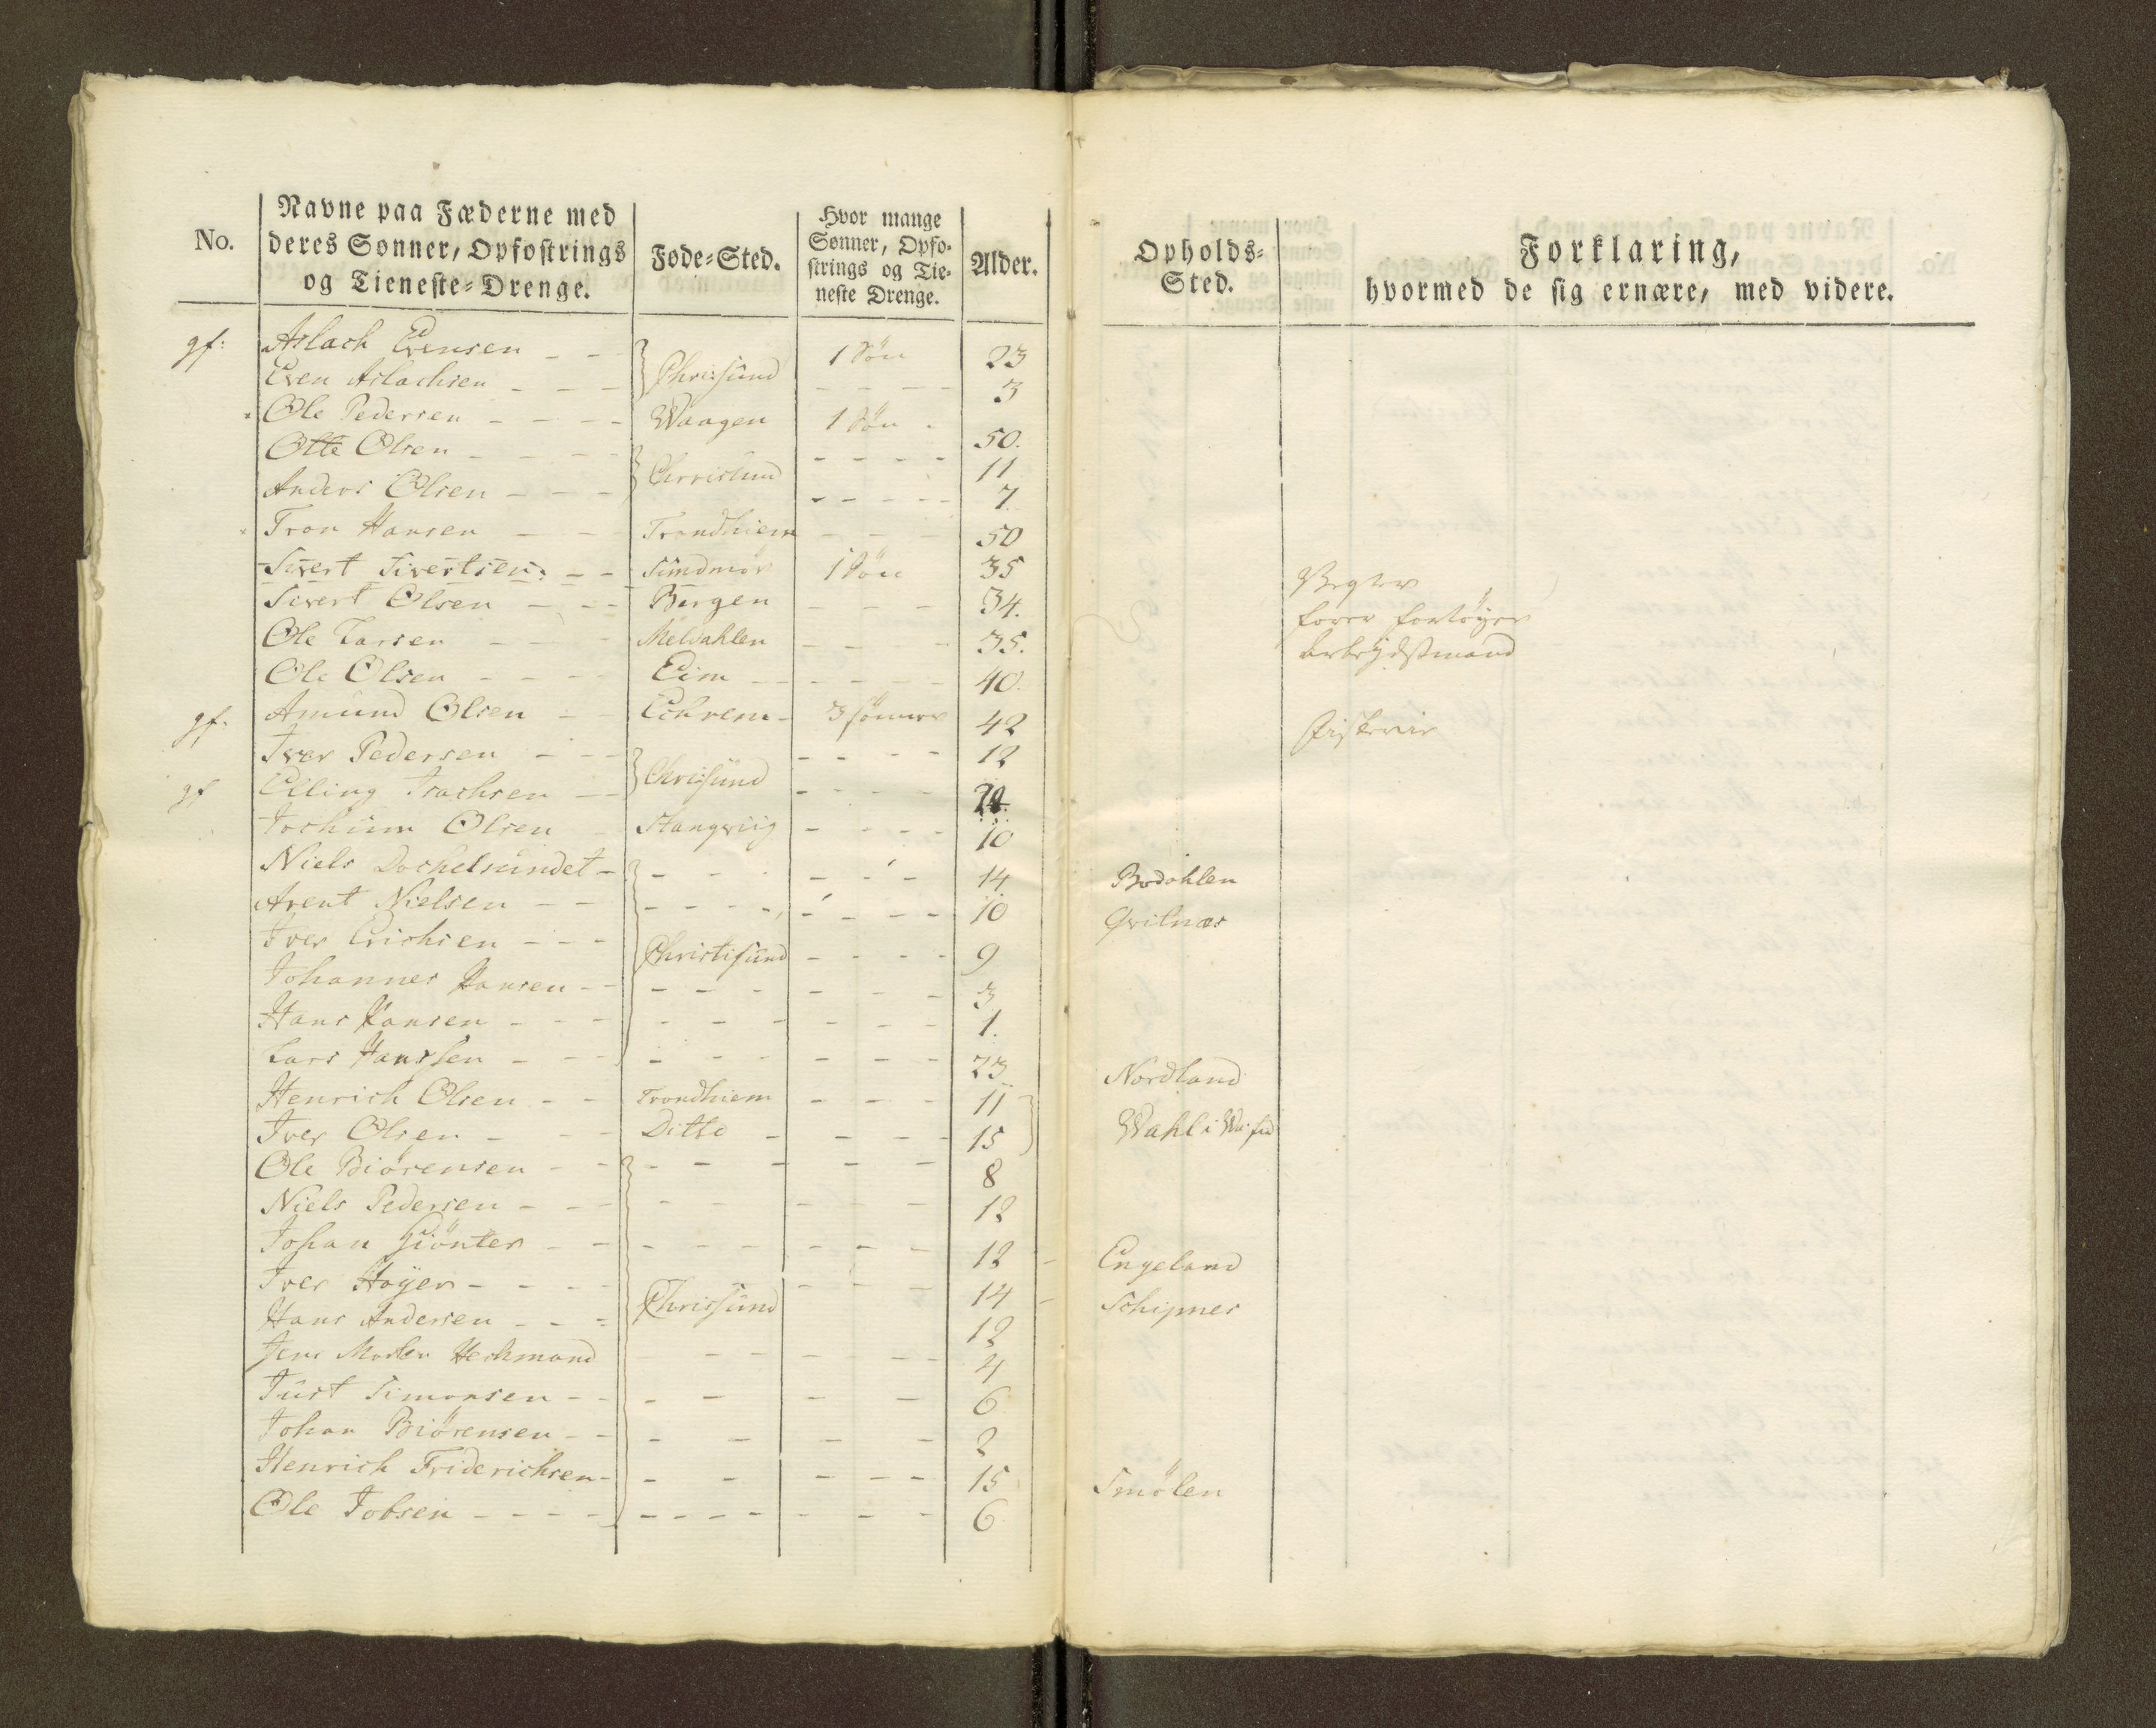 No.
Navne paa Fæderne med
deres Sønner, Opfostrings
og Tieneste-Drenge.
Føde-Sted.
Hvor mange
Sønner, Opfo-
strings og Tie-
neste Drenge.
Alder.
Opholds-
Sted.
Forklaring,
hvormed de sig ernære, med videre.
gf: Aslach Evensen - - Chrisſund 1 Søn 23
Even Aslachsen - - - 3
Ole Pedersen - - - - Waagen 1 Søn 50.
Otte Olsen - - - - Chrrislund 11
Anders Olsen - - - 7
Tron Hansen - - Trondhiem - - - 50
Sivert Sivertsen - - Sundmør 1 Søn 35
Sivert Olsen - - - Bergen - - - 34.
Ole Larsen - - - Meldahlen - - - - 35. arbeydsmand
Ole Olsen - - - - Eim - - - - - 40.
gf: Amund Olsen - - Echrem - 3 sønner 42
Iver Pedersen - - - Chrisſund - - - - 12
gf Elling Isachsen - - - - - -
Jochim Olsen Stangwiig - - - - 10
Niels Dochelsundet - - - - - - - 14 Bodahlen
Arent Nielsen - - - - - - - - - - 10 Qvilnæs
Iver Erichsen - - - Christiſund - - - - 9
Johannes Hansen - - - - - - - - - 3
Hans Hansen - - - - - - - - - - 1.
Lars Hansſen - - - - - - - - - 23 Nordland
Henrich Olsen - - Trondhiem - - - 11
Iver Olsen - - - Ditto - - - - 15 Wahl i
Ole Biörensen - - - - - - - 8
Niels Pedersen - - - - - - - - 12
Johan Giönter - - - - - - - - - 12 - Engeland
Iver Høyer - - - - Chrisſund - - - 14 - Schipnes
Hans Andersen - - - 12
Jens Hechmand - - - - - - 4
Just Simonsen - - - - - - 6
Johan Biörensen - - - - - - 2
Henrich Friderichsen - - - - - - 15 Smølen
Ole Jobsen - - - - - - - - - - - 6